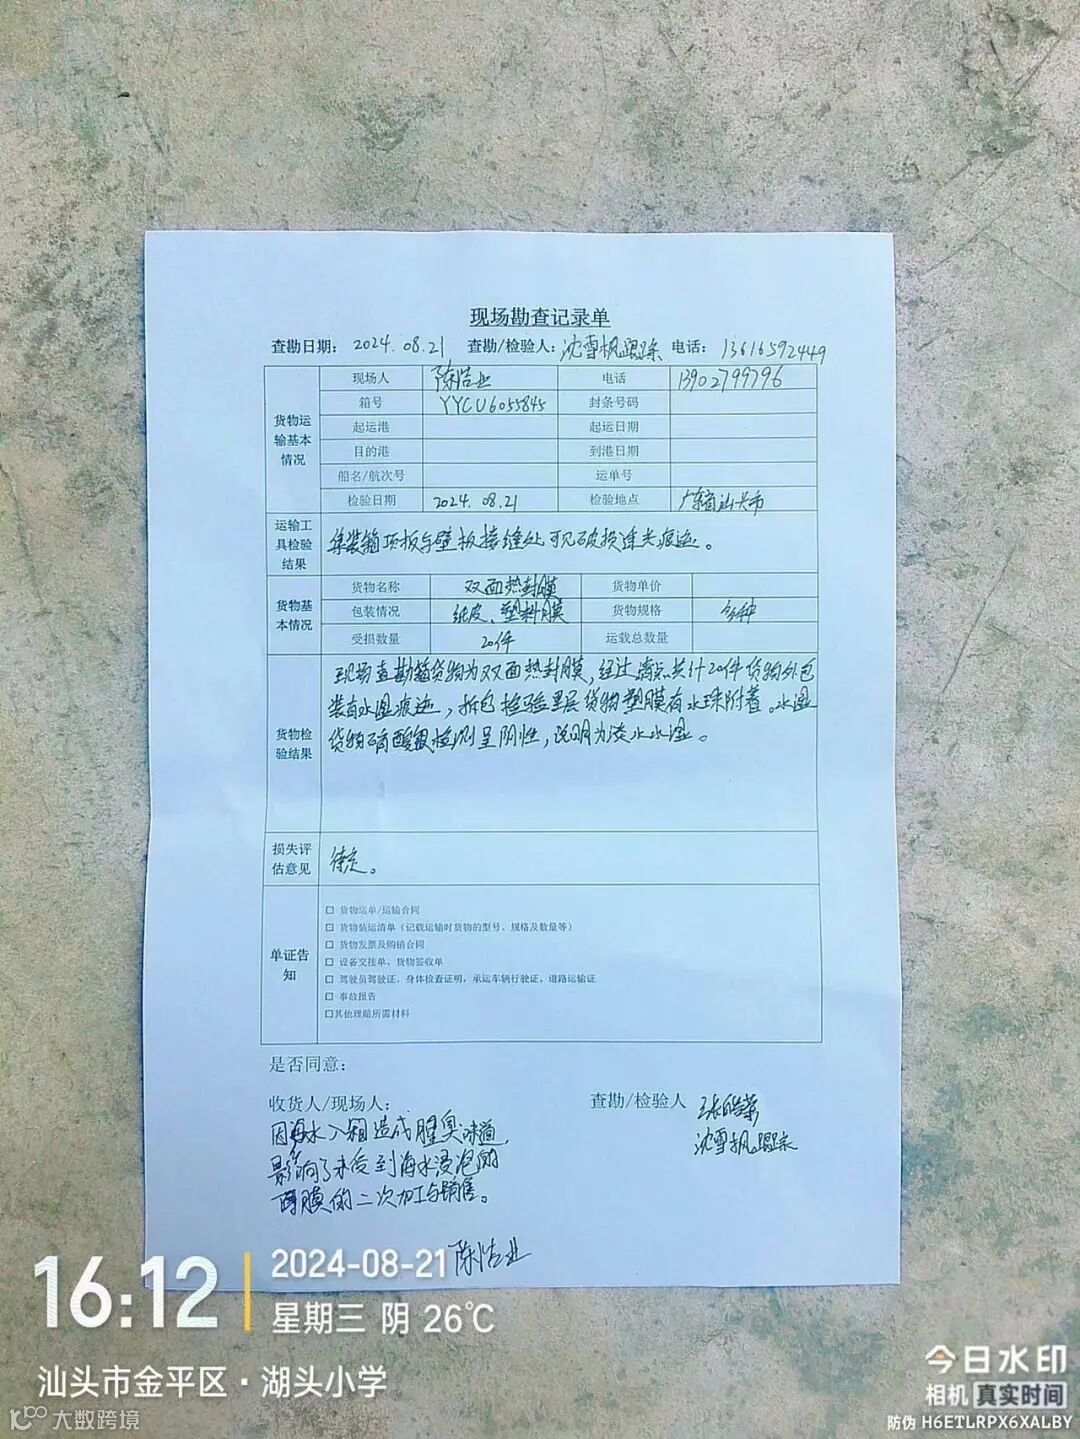 现场勘查记录单
查勘日期： 2024.08.21 查勘/检验人：沈雪枫 电话：13616592449
货物运输基本情况
现场人 陈浩业 电话 13902799796
箱号 YYCU6055845 封条号码
起运港 起运日期
目的港 到港日期
船名/航次号 运单号
检验日期 2024.08.21 检验地点 广东省汕头市
运输工具检验结果
集装箱顶板与壁板接缝处可见破损连关痕迹。
货物基本情况
货物名称 双面热封膜 货物单价
包装情况 纸皮、塑料膜 货物规格 多种
受损数量 20件 运载总数量
货物检验结果
现场查勘箱货物为双面热封膜，经过清点共计20件货物外包
装有水湿痕迹，拆包检验里层货物塑膜有水珠附着。水湿
货物硝酸银检测呈阴性，说明为淡水水湿。
损失评估意见
待定。
单证告知
□ 货物运单/运输合同
□ 货物装运清单（记载运输时货物的型号、规格及数量等）
□ 货物发票及购销合同
□ 设备交接单、货物签收单
□ 驾驶员驾驶证、身体检查证明，承运车辆行驶证，道路运输证
□ 事故报告
□其他理赔所需材料
是否同意：
收货人/现场人：
查勘/检验人
沈雪枫
因海水入箱造成腥臭味道，
影响了未受到海水浸泡的
膜的二次加工与销售。
陈浩业
16:12
2024-08-21
星期三 阴 26℃
汕头市金平区·湖头小学
今日水印
相机 真实时间
防伪 H6ETLRPX6XALBY
大数跨境